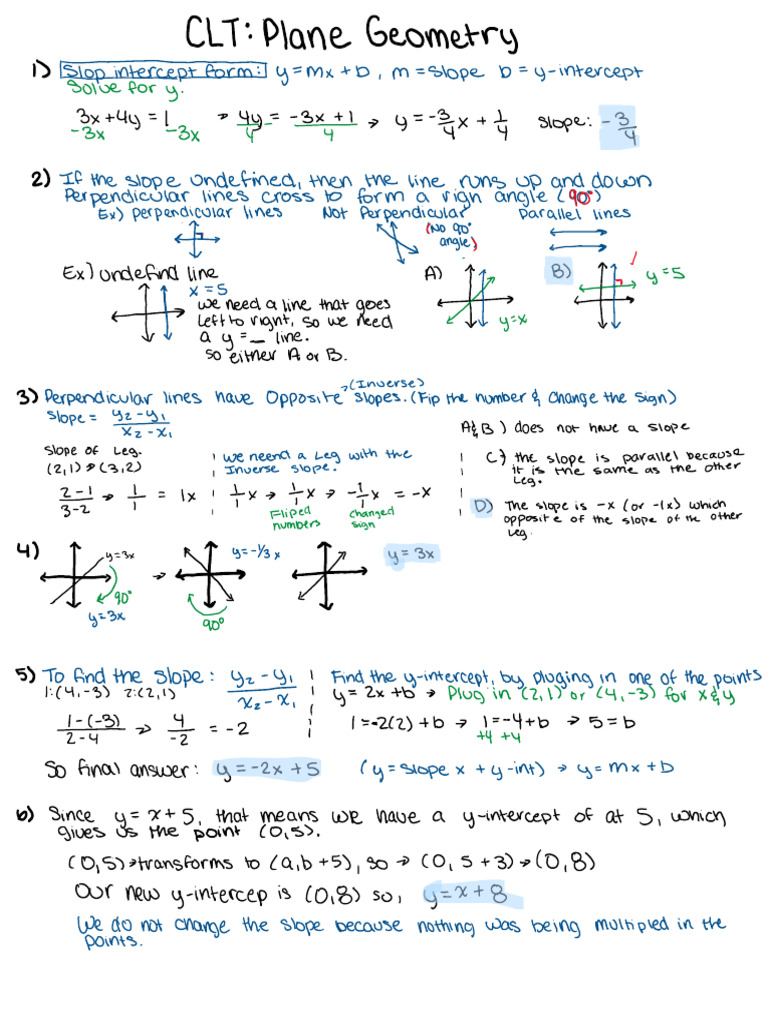 CLT: Plane Geometry
1) Slop intercept form: y=mx+b, m=slope b=y-intercept
Solve for y.
3x+4y=1 → 4y = -3x+1 → y=-3/4x + 1/4 slope: -3/4
-3x -3x 4 4
2) If the slope undefined, then the line runs up and down
Perpendicular lines cross to form a righ angle (90°)
Ex) perpendicular lines Not Perpendicular Parallel lines
(No 90° angle)
Ex) undefind line
x=5
we need a line that goes
left to right, so we need
a y=_ line.
so either A or B.
A) y=x
B) y=5
3) Perpendicular lines have opposite (Inverse) slopes. (Flip the number & change the sign)
slope = y₂-y₁/x₂-x₁
Slope of Leg.
(2,1) → (3,2)
2-1/3-2 → 1/1 = 1x
we neend a Leg with the
Inverse slope.
1/1x → 1/1x → -1/1x = -x
Fliped numbers
changed sign
A&B) does not have a slope
C) the slope is parallel because
it is the same as the other
Leg.
D) The slope is -x (or -1x) which
opposite of the slope of the other
leg.
4) y=3x 90° y=3x → y=-1/3x 90° y=3x
5) To find the slope: y₂-y₁/x₂-x₁
1:(4,-3) 2:(2,1)
1-(-3)/2-4 → 4/-2 = -2
Find the y-intercept, by pluging in one of the points
y=2x+b → Plug in (2,1) or (4,-3) for x&y
1=-2(2)+b → 1=-4+b → 5=b
+4 +4
So final answer: y=-2x+5 (y=slope x + y-int) → y=mx+b
6) Since y=x+5, that means we have a y-intercept of at 5, which
gives us the point (0,5).
(0,5)→transforms to (a,b+5), so → (0, 5+3)→(0,8)
Our new y-intercep is (0,8) so, y=x+8
We do not change the slope because nothing was being multipled in the
points.